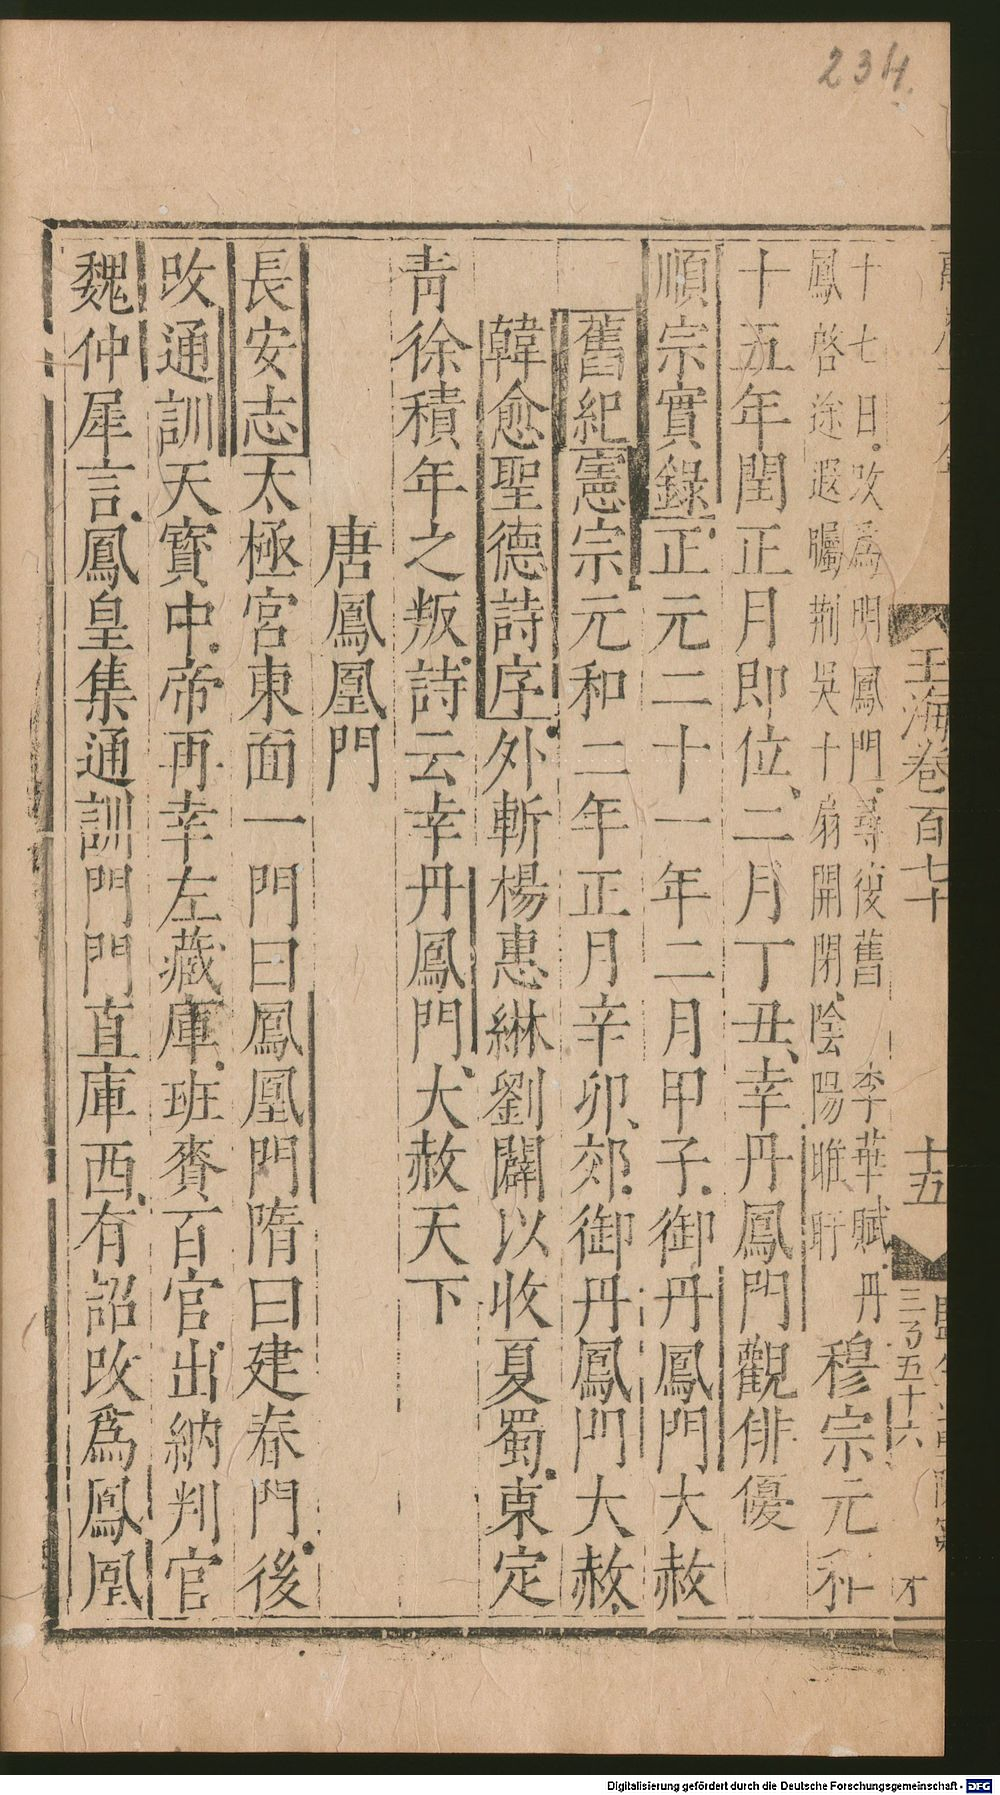 234.
玉海卷百七十
十五
三百五十六
十七日改爲明鳳門尋復舊 李華賦丹
鳳啓途遐矚荆吳十扇開閉陰陽睢盱
穆宗元和
十五年閏正月即位二月丁丑幸丹鳳門觀俳優
順宗實錄正元二十一年二月甲子御丹鳳門大赦
舊紀憲宗元和二年正月辛卯郊御丹鳳門大赦
韓愈聖德詩序外斬楊惠綝劉闢以收夏蜀東定
青徐積年之叛詩云幸丹鳳門大赦天下
唐鳳凰門
長安志太極宮東面一門曰鳳凰門隋曰建春門後
改通訓天寶中帝再幸左藏庫班賚百官出納判官
魏仲犀言鳳皇集通訓門門直庫西有詔改爲鳳凰
Digitalisierung gefördert durch die Deutsche Forschungsgemeinschaft - DFG